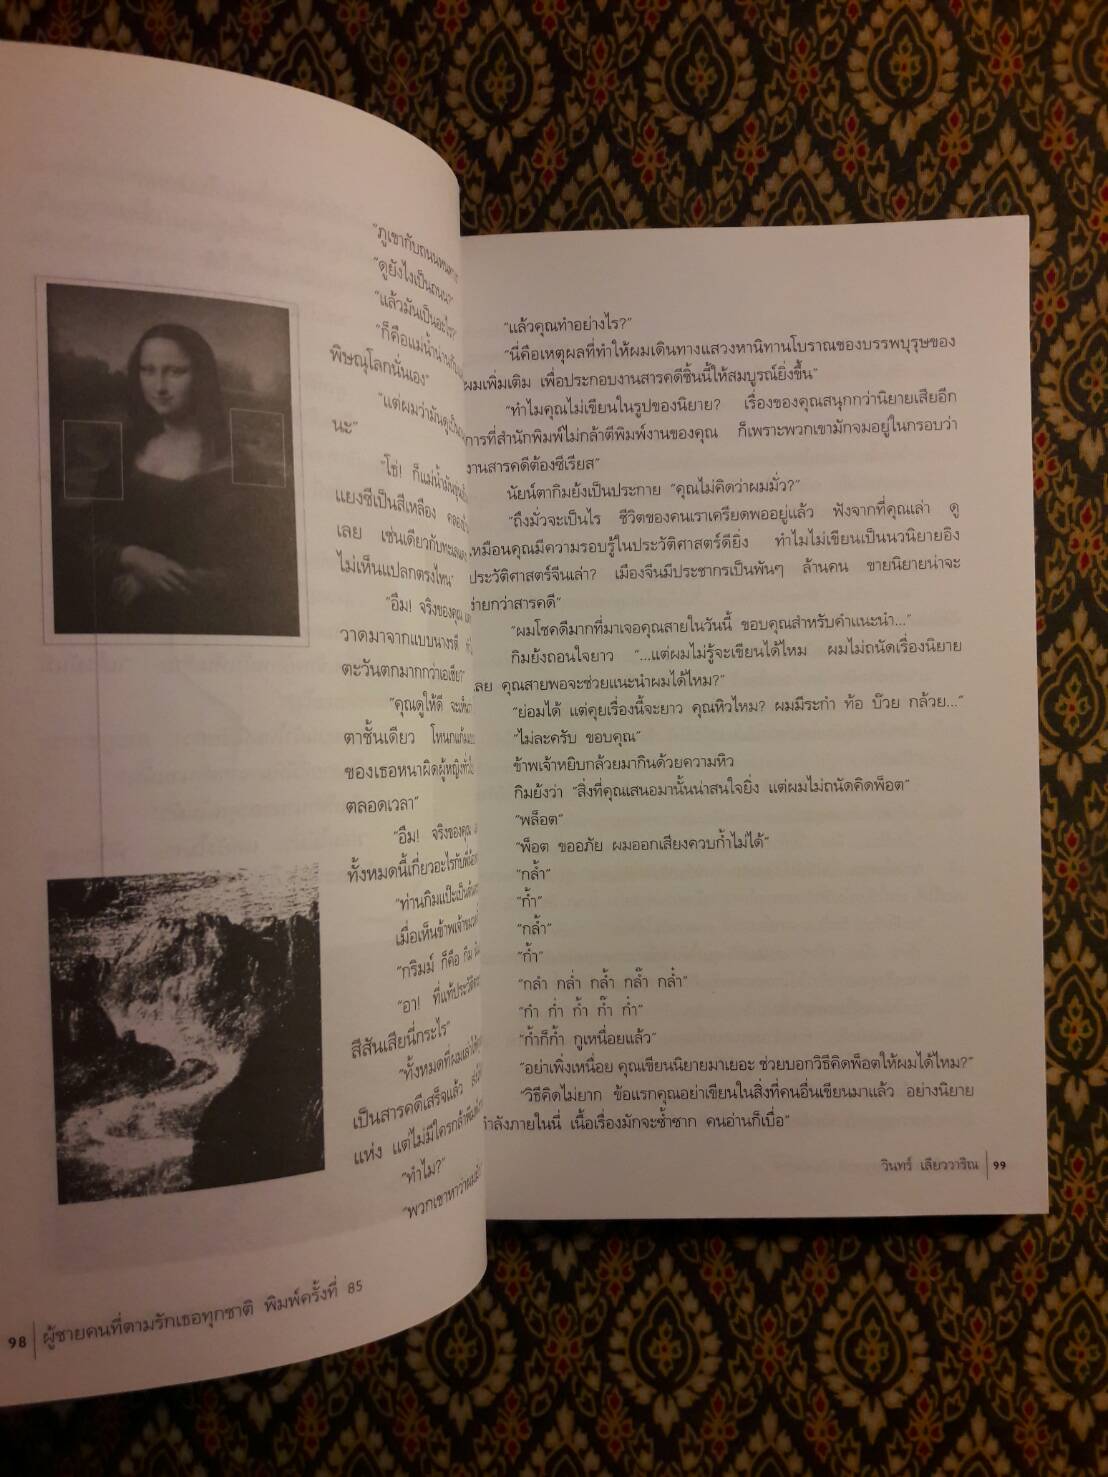 "ภูเขากับถนน
"ดูยังไงเป็นถนน?"
"แล้วมันเป็นอะไร?"
"ก็คือแม่น้ำน่าน
พิษณุโลกนั่นเอง"
"แต่ผมว่ามันดูเป็น
นะ"
"โธ่! ก็แม่น้ำมัน
แยงซีเป็นสีเหลือง
เลย เช่นเดียวกับ
ไม่เห็นแปลกตรงไหน"
"อืม! จริงของคุณ
วาดมาจากแบบนางรตี
ตะวันตกมากกว่าเอเชีย"
"คุณดูให้ดี จะเห็น
ตาชั้นเดียว โหนกแก้ม
ของเธอหนาผิดผู้หญิงทั่วไป
ตลอดเวลา"
"อืม! จริงของคุณ
ทั้งหมดนี้เกี่ยวอะไรกับ
"ท่านกิมแป๊ะเป็นต้น
เมื่อเห็นข้าพเจ้า
"กริมม์ ก็คือ กิม
"อา! ที่แท้ประวัติ
สีสันเสียนี่กระไร"
"ทั้งหมดที่ผมเล่าให้
เป็นสารคดีเสร็จแล้ว
แห่ง แต่ไม่มีใครกล้าพิมพ์
"ทำไม?"
"พวกเขาหาว่าผม
98 ผู้ชายคนที่ตามรักเธอทุกชาติ พิมพ์ครั้งที่ 85
"แล้วคุณทำอย่างไร?"
"นี่คือเหตุผลที่ทำให้ผมเดินทางแสวงหานิทานโบราณของบรรพบุรุษของ
ผมเพิ่มเติม เพื่อประกอบงานสารคดีชิ้นนี้ให้สมบูรณ์ยิ่งขึ้น"
"ทำไมคุณไม่เขียนในรูปของนิยาย? เรื่องของคุณสนุกกว่านิยายเสียอีก
การที่สำนักพิมพ์ไม่กล้าตีพิมพ์งานของคุณ ก็เพราะพวกเขามักจมอยู่ในกรอบว่า
งานสารคดีต้องซีเรียส"
นัยน์ตากิมย้งเป็นประกาย "คุณไม่คิดว่าผมมั่ว?"
"ถึงมั่วจะเป็นไร ชีวิตของคนเราเครียดพออยู่แล้ว ฟังจากที่คุณเล่า ดู
เหมือนคุณมีความรอบรู้ในประวัติศาสตร์ดียิ่ง ทำไมไม่เขียนเป็นนวนิยายอิง
ประวัติศาสตร์จีนเล่า? เมืองจีนมีประชากรเป็นพันๆ ล้านคน ขายนิยายน่าจะ
ง่ายกว่าสารคดี"
"ผมโชคดีมากที่มาเจอคุณสายในวันนี้ ขอบคุณสำหรับคำแนะนำ..."
กิมย้งถอนใจยาว "...แต่ผมไม่รู้จะเขียนได้ไหม ผมไม่ถนัดเรื่องนิยาย
เลย คุณสายพอจะช่วยแนะนำผมได้ไหม?"
"ย่อมได้ แต่คุยเรื่องนี้จะยาว คุณหิวไหม? ผมมีระกำ ท้อ บ๊วย กล้วย..."
"ไม่ละครับ ขอบคุณ"
ข้าพเจ้าหยิบกล้วยมากินด้วยความหิว
กิมย้งว่า "สิ่งที่คุณเสนอมานั้นน่าสนใจยิ่ง แต่ผมไม่ถนัดคิดพ็อต"
"พล็อต"
"พ็อต ขออภัย ผมออกเสียงควบก้ำไม่ได้"
"กล้ำ"
"ก้ำ"
"กล้ำ"
"ก้ำ"
"กลำ กล่ำ กล้ำ กล๊ำ กล๋ำ"
"กำ ก่ำ ก้ำ ก๊ำ ก๋ำ"
"ก้ำก็ก้ำ กูเหนื่อยแล้ว"
"อย่าเพิ่งเหนื่อย คุณเขียนนิยายมาเยอะ ช่วยบอกวิธีคิดพ็อตให้ผมได้ไหม?"
"วิธีคิดไม่ยาก ข้อแรกคุณอย่าเขียนในสิ่งที่คนอื่นเขียนมาแล้ว อย่างนิยาย
กำลังภายในนี่ เนื้อเรื่องมักจะซ้ำซาก คนอ่านก็เบื่อ"
วินทร์ เลียววาริณ 99